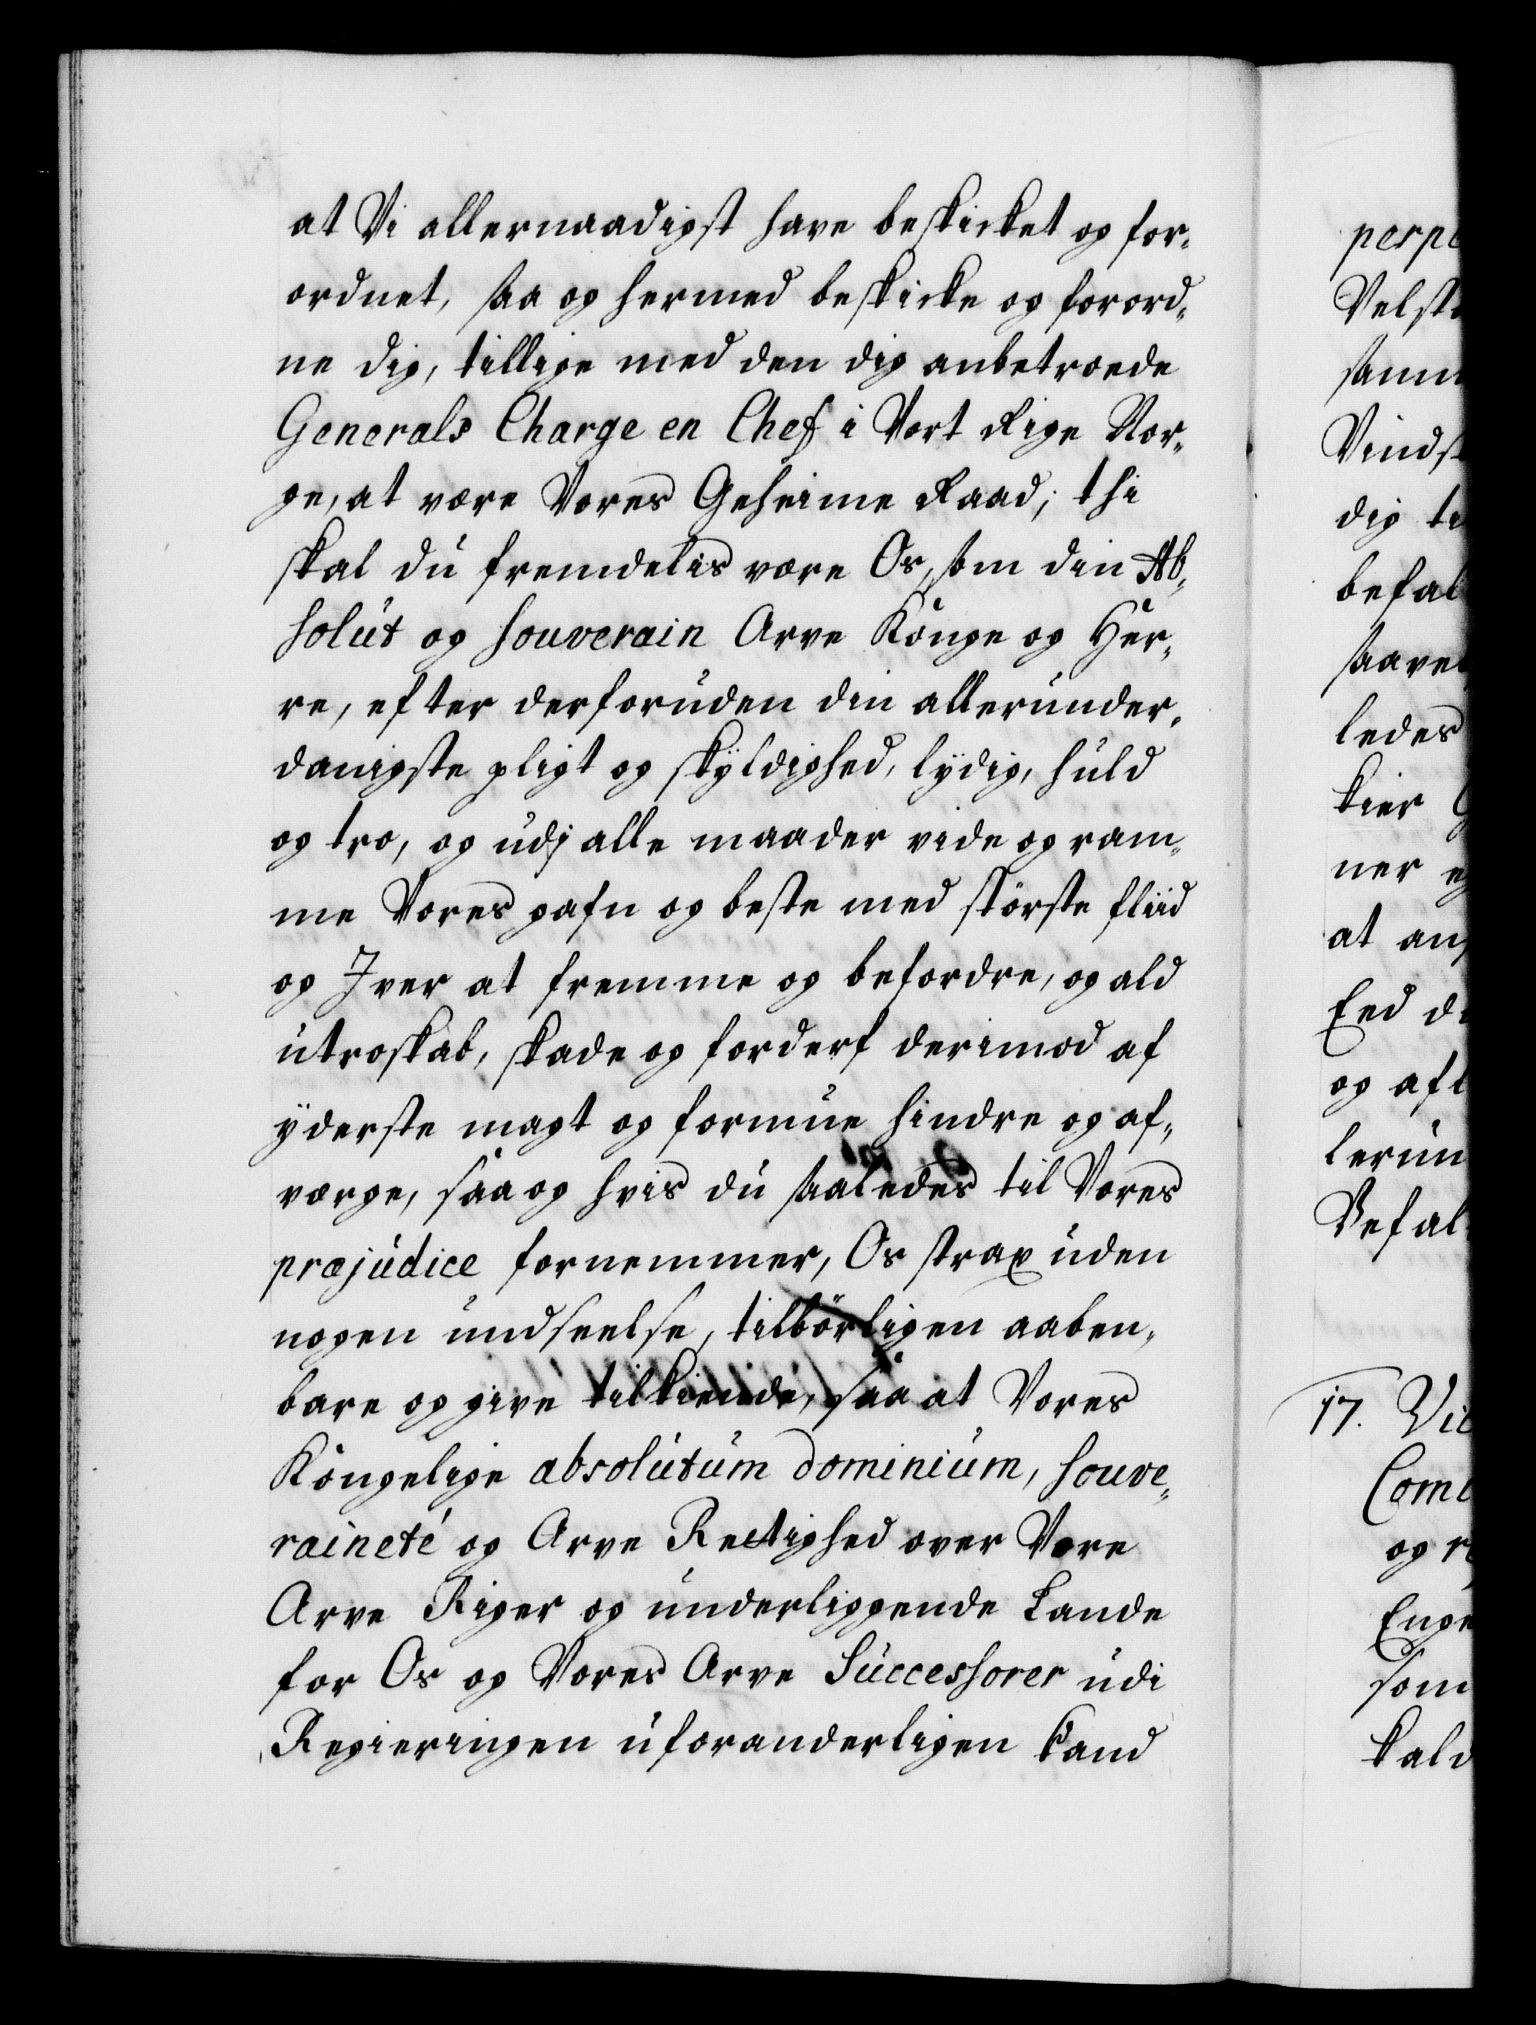 at Vi allernaadigst have beskicket og for-
ordnet, saa og hermed beskicke og forord-
ne dig, tillige med den dig anbetroede
Generals Charge en Chef i Vort Rige Nor-
ge, at være Vores Geheime Raad; thi
skal du fremdelis være Os, som din Ab-
solut og souverain Arve Konge og Her-
re, efter derforuden din allerunder-
danigste pligt og skyldighed, lydig, huld
og tro, og udj alle maader vide og ram-
me Vores gafn og beste med störste fliid
og Iver at fremme og befordre, og ald
utroskab, skade og forderf derimod af
yderste magt og formue hindre og af-
værge, saa og hvis du saaledes til Vores
præjudice fornemmer, Os strax uden
nogen undseelse, tilbörligen aaben-
bare og give tilkiende, saa at Vores
Kongelige absolutum dominium, souve-
raineté og Arve Rettighed over Vore
Arve Riger og underliggende Lande
for Os og Vores Arve Successorer udi
Regieringen uforanderligen kand
perpe
Velsta
samm
Vindsk
dig ti
befal
saavel
ledes
kier G
ner og
at an
Eed d
og afl
lerun
Befal
17. Vic
Com
og r
Enge
som
kald